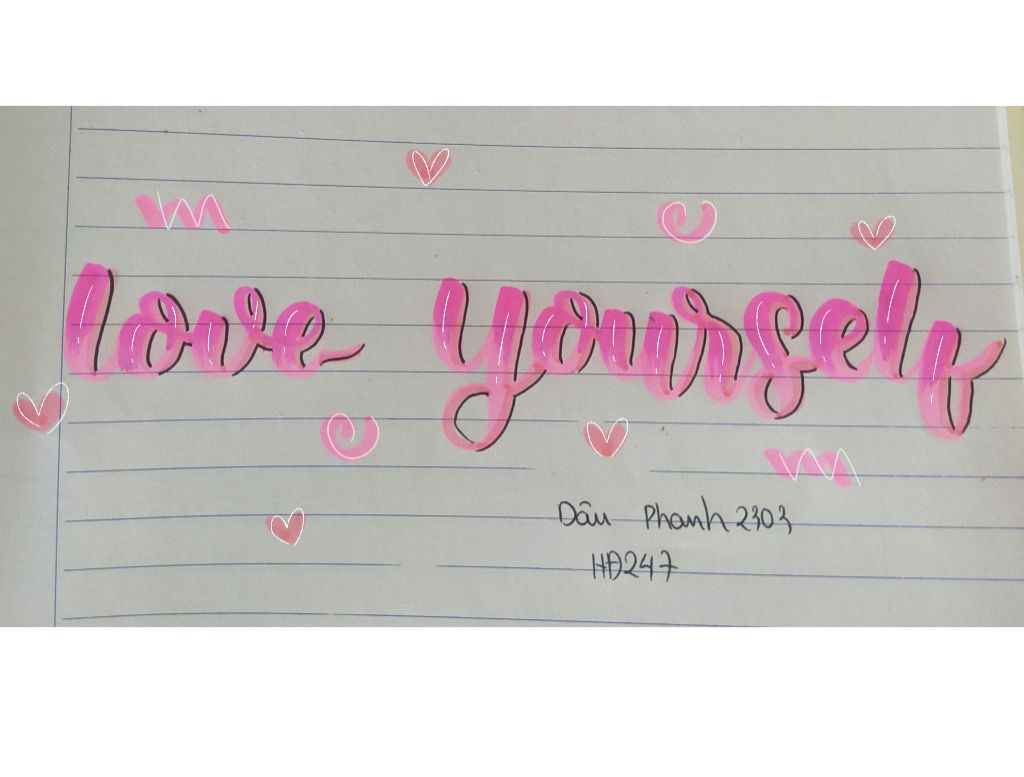 love yourself
Dâu Phanh2303
HĐ247